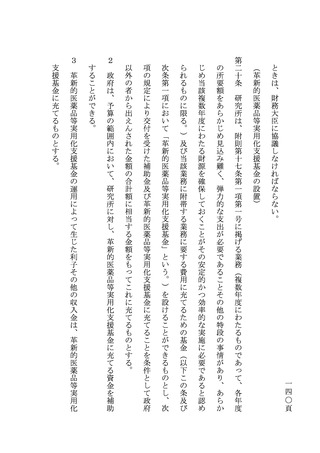 一四〇頁
ときは、財務大臣に協議しなければならない。
（革新的医薬品等実用化支援基金の設置）
第二十条　研究所は、附則第十七条第一項第一号に掲げる業務（複数年度にわたるものであって、各年度
の所要額をあらかじめ見込み難く、弾力的な支出が必要であることその他の特段の事情があり、あらか
じめ当該複数年度にわたる財源を確保しておくことがその安定的かつ効率的な実施に必要であると認め
られるものに限る。）及び当該業務に附帯する業務に要する費用に充てるための基金（以下この条及び
次条第一項において「革新的医薬品等実用化支援基金」という。）を設けることができるものとし、次
項の規定により交付を受けた補助金及び革新的医薬品等実用化支援基金に充てることを条件として政府
以外の者から出えんされた金額の合計額に相当する金額をもってこれに充てるものとする。
２　政府は、予算の範囲内において、研究所に対し、革新的医薬品等実用化支援基金に充てる資金を補助
することができる。
３　革新的医薬品等実用化支援基金の運用によって生じた利子その他の収入金は、革新的医薬品等実用化
支援基金に充てるものとする。